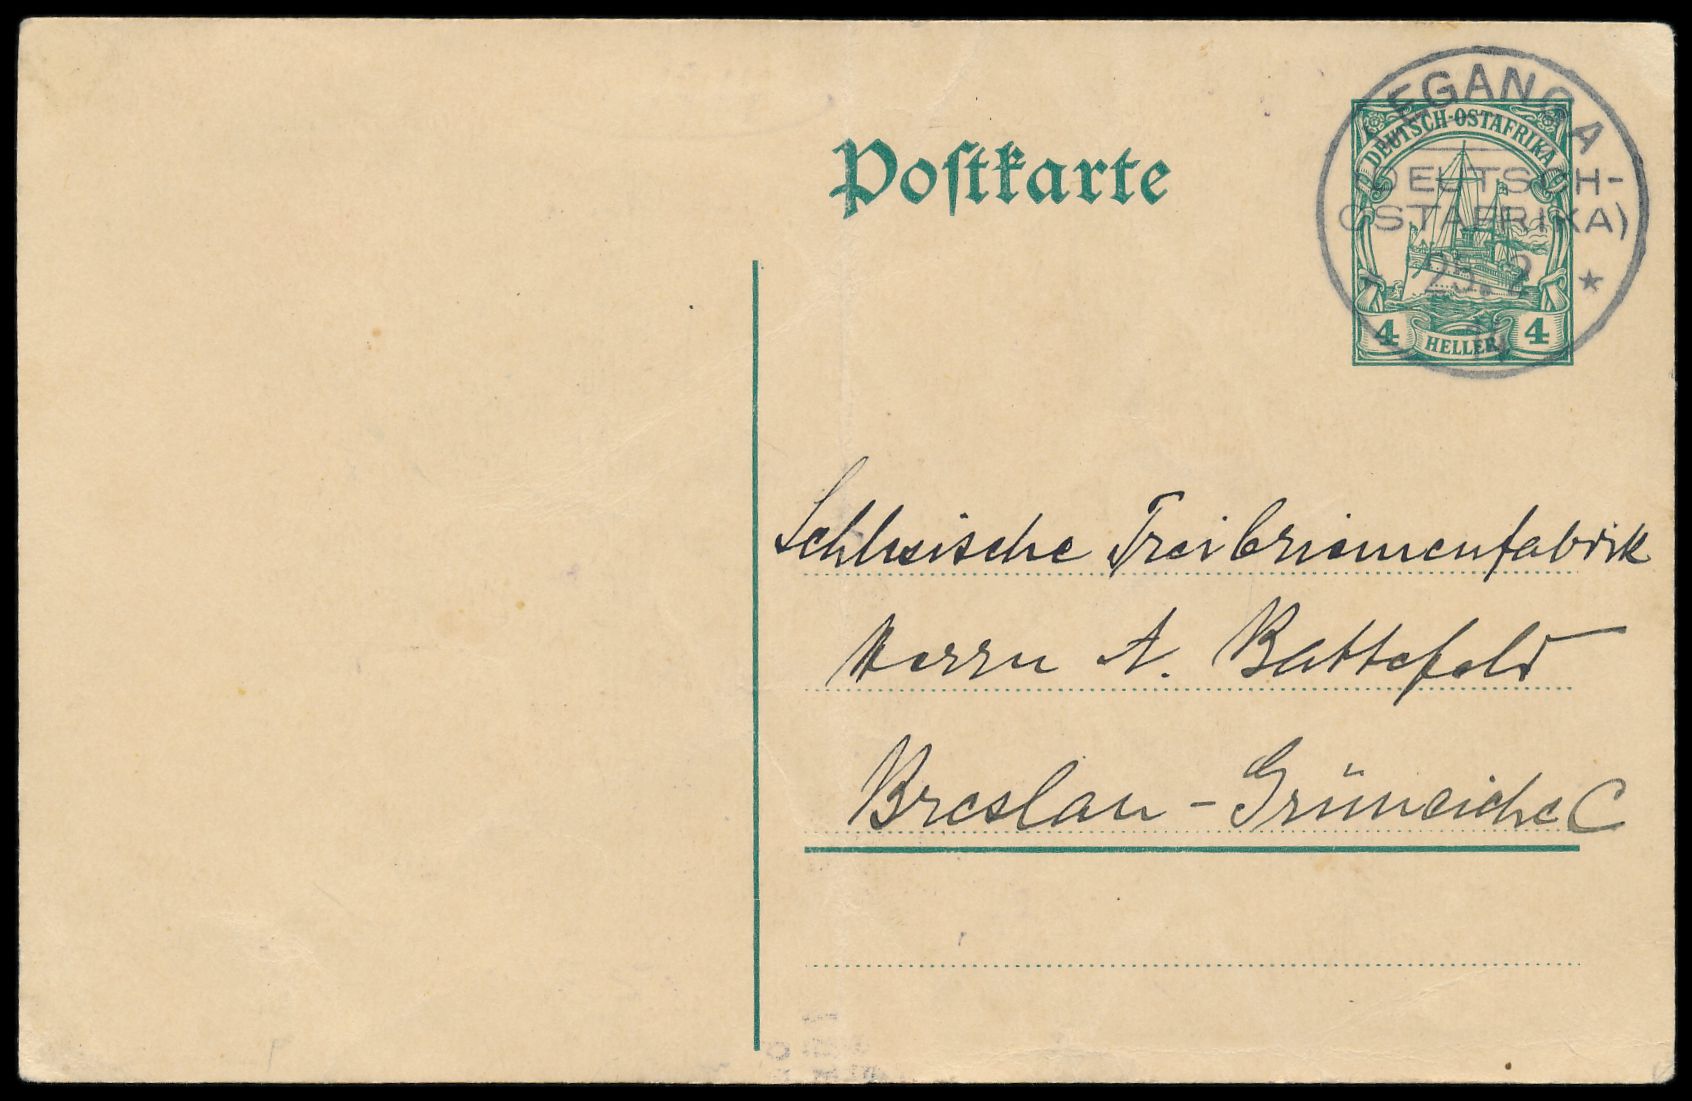 Postkarte
DEUTSCH-OSTAFRIKA
4 HELLER 4
(DEUTSCH-
OSTAFRIKA)
25.2
Schlesische Treibriemenfabrik
Herrn A. Battefeld
Breslau - Grüneiche C